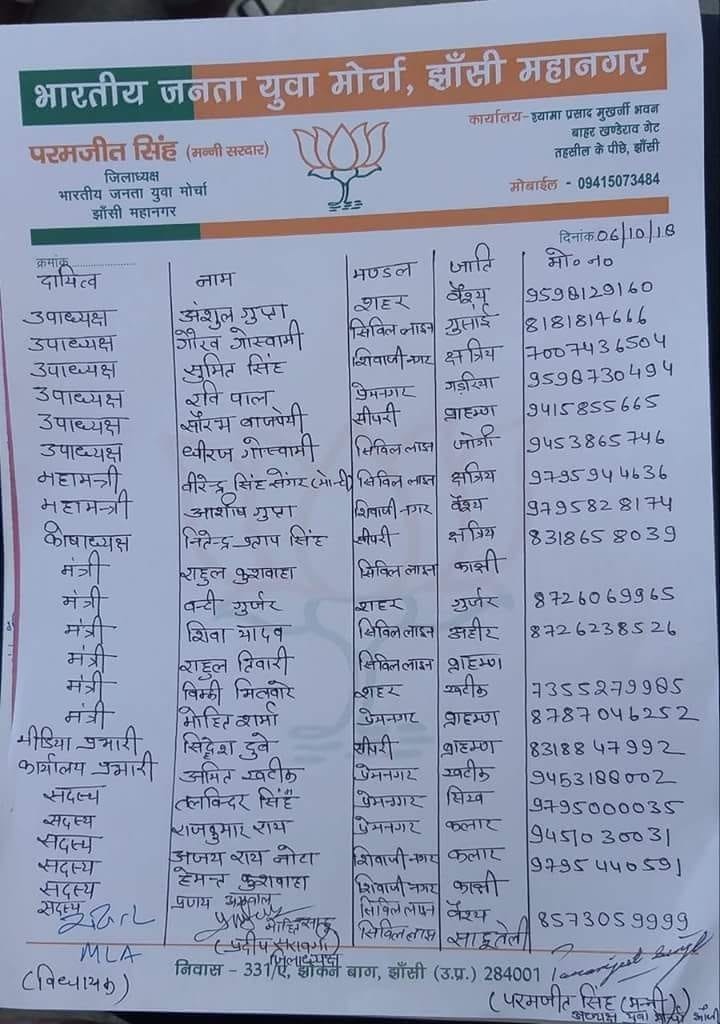 भारतीय जनता युवा मोर्चा, झाँसी महानगर
परमजीत सिंह (मन्नी सरदार)
जिलाध्यक्ष
भारतीय जनता युवा मोर्चा
झाँसी महानगर
कार्यालय- श्यामा प्रसाद मुखर्जी भवन
बाहर खण्डेराव गेट
तहसील के पीछे, झाँसी
मोबाईल - 09415073484
क्रमांक
दिनांक 06/10/18
दायित्व नाम मण्डल जाति मो० न०
उपाध्यक्ष अंशुल गुप्ता शहर वैश्य 9598129160
उपाध्यक्ष गौरव गोस्वामी सिविल लाइन गुसांई 8181814666
उपाध्यक्ष सुमित सिंह शिवाजी नगर क्षत्रिय 7007436504
उपाध्यक्ष रवि पाल प्रेमनगर गड़रिया 9598730494
उपाध्यक्ष सौरभ बाजपेयी सीपरी ब्राह्मण 9415855665
उपाध्यक्ष धीरज गोस्वामी सिविल लाइन जोगी 9453865746
महामन्त्री वीरेन्द्र सिंह सेंगर सिविल लाइन क्षत्रिय 9795944636
महामन्त्री आशीष गुप्ता शिवाजी नगर वैश्य 9795828174
कोषाध्यक्ष जितेन्द्र प्रताप सिंह सीपरी क्षत्रिय 8318658039
मंत्री राहुल कुशवाहा सिविल लाइन काछी
मंत्री बन्टी गुर्जर शहर गुर्जर 8726069965
मंत्री शिवा यादव सिविल लाइन अहीर 8726238526
मंत्री राहुल तिवारी सिविल लाइन ब्राह्मण
मंत्री विक्की मिलवारे शहर खटीक 7355279985
मंत्री मोहित शर्मा प्रेमनगर ब्राह्मण 8787046252
मीडिया प्रभारी सिद्धेश दुबे सीपरी ब्राह्मण 8318847992
कार्यालय प्रभारी अमित खटीक प्रेमनगर खटीक 9453188002
सदस्य तलविन्दर सिंह प्रेमनगर सिख 9795000035
सदस्य राजकुमार राय प्रेमनगर कलार 9451030031
सदस्य अजय राय नोटा शिवाजी नगर कलार 9795440591
सदस्य हेमन्त कुशवाहा शिवाजी नगर काछी
सदस्य प्रणय अग्रवाल सिविल लाइन वैश्य 8573059999
मोहित साहू सिविल लाइन साहू तेली
MLA
(विधायक)
(प्रदीप सरावगी)
जिलाध्यक्ष
निवास - 331/ए, झोकन बाग, झाँसी (उ.प्र.) 284001
(परमजीत सिंह (मन्नी)
अध्यक्ष युवा मोर्चा झाँसी